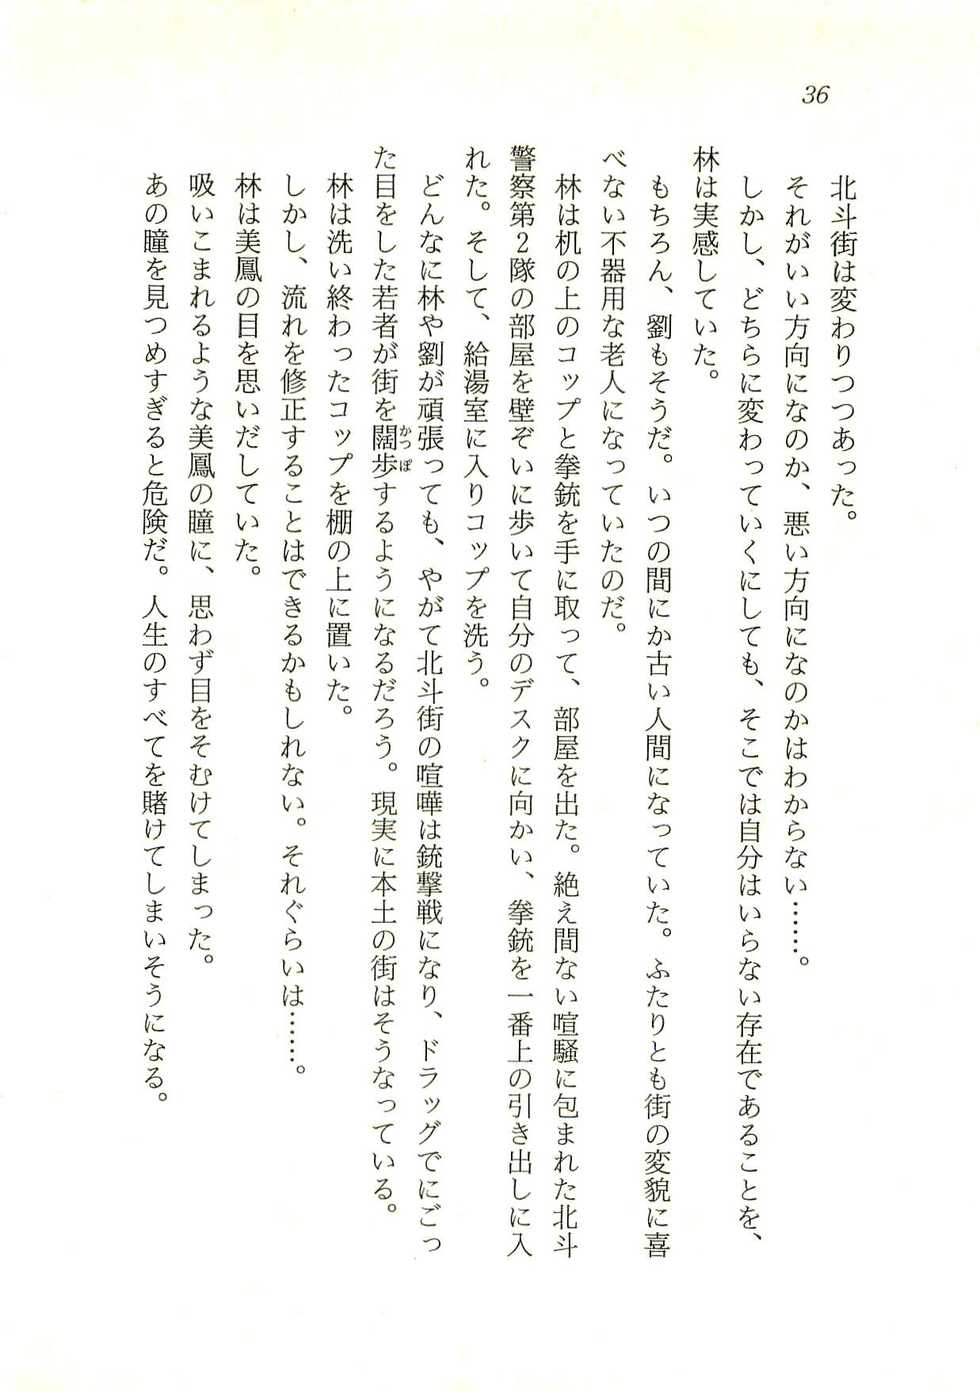 36
北斗街は変わりつつあった。
それがいい方向になのか、悪い方向になのかはわからない……。
しかし、どちらに変わっていくにしても、そこでは自分はいらない存在であることを、
林は実感していた。
もちろん、劉もそうだ。いつの間にか古い人間になっていた。ふたりとも街の変貌に喜
べない不器用な老人になっていたのだ。
林は机の上のコップと拳銃を手に取って、部屋を出た。絶え間ない喧騒に包まれた北斗
警察第2隊の部屋を壁ぞいに歩いて自分のデスクに向かい、拳銃を一番上の引き出しに入
れた。そして、給湯室に入りコップを洗う。
どんなに林や劉が頑張っても、やがて北斗街の喧嘩は銃撃戦になり、ドラッグでにごっ
た目をした若者が街を闊歩かっぽするようになるだろう。現実に本土の街はそうなっている。
林は洗い終わったコップを棚の上に置いた。
しかし、流れを修正することはできるかもしれない。それぐらいは……。
林は美鳳の目を思いだしていた。
吸いこまれるような美鳳の瞳に、思わず目をそむけてしまった。
あの瞳を見つめすぎると危険だ。人生のすべてを賭けてしまいそうになる。